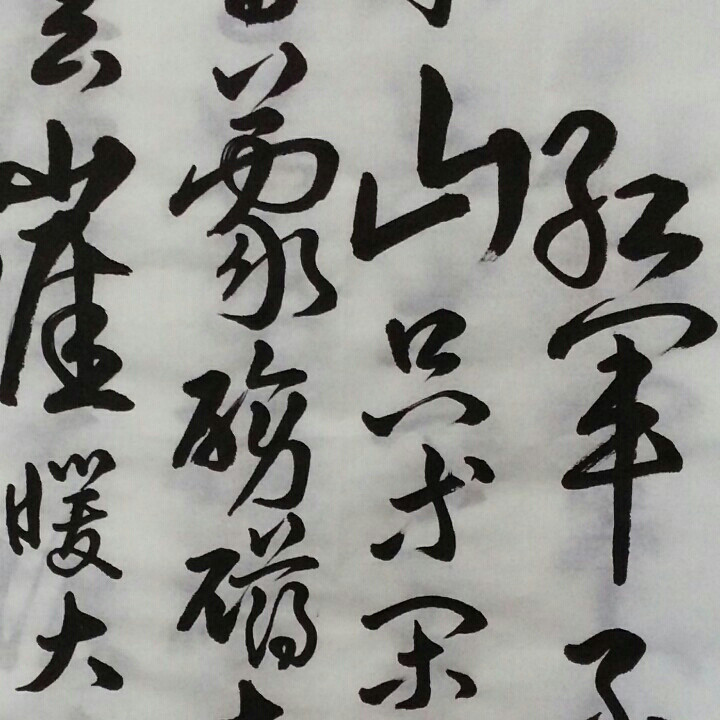 红军不
山只等闲
蒙磅礴
云崖暖大